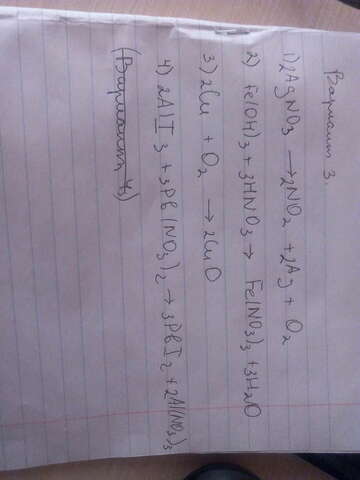 Вариант 3.
1) 2AgNO3 → 2NO2 + 2Ag + O2
2) Fe(OH)3 + 3HNO3 → Fe(NO3)3 + 3H2O
3) 2Cu + O2 → 2CuO
4) 2AlI3 + 3Pb(NO3)2 → 3PbI2 + 2Al(NO3)3
(Вариант 4)